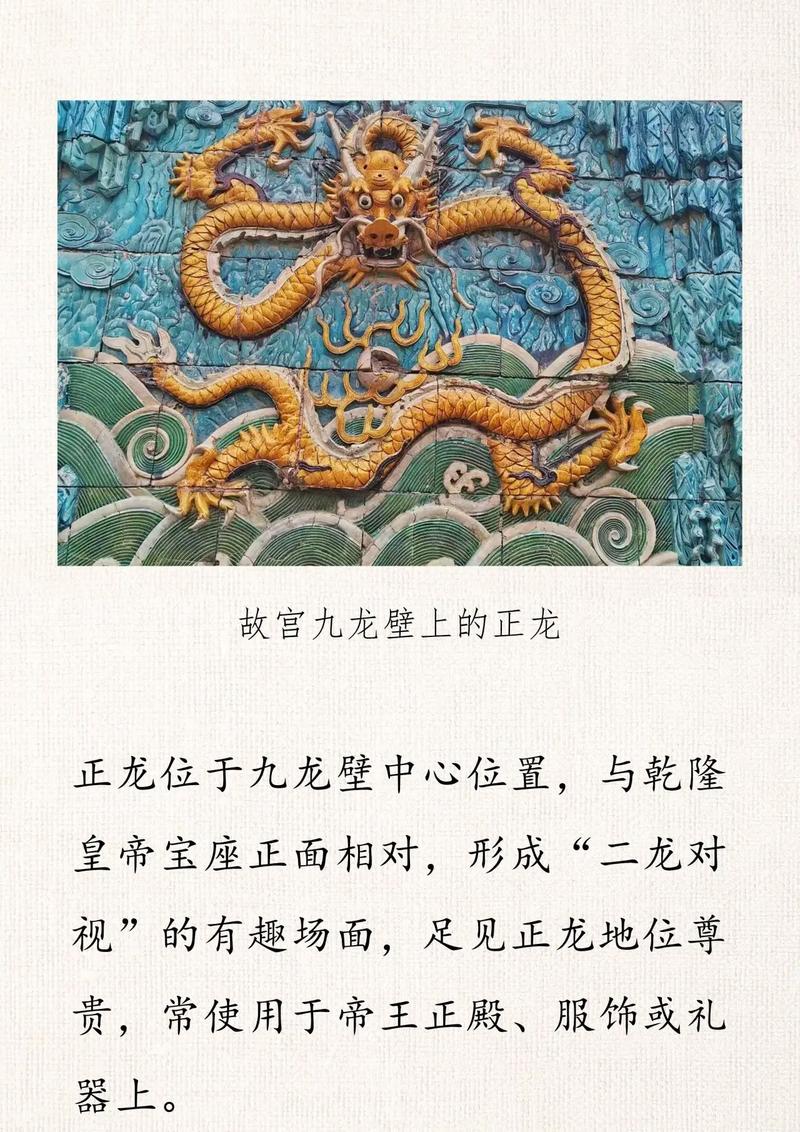 故宫九龙壁上的正龙
正龙位于九龙壁中心位置，与乾隆
皇帝宝座正面相对，形成“二龙对
视”的有趣场面，足见正龙地位尊
贵，常使用于帝王正殿、服饰或礼
器上。